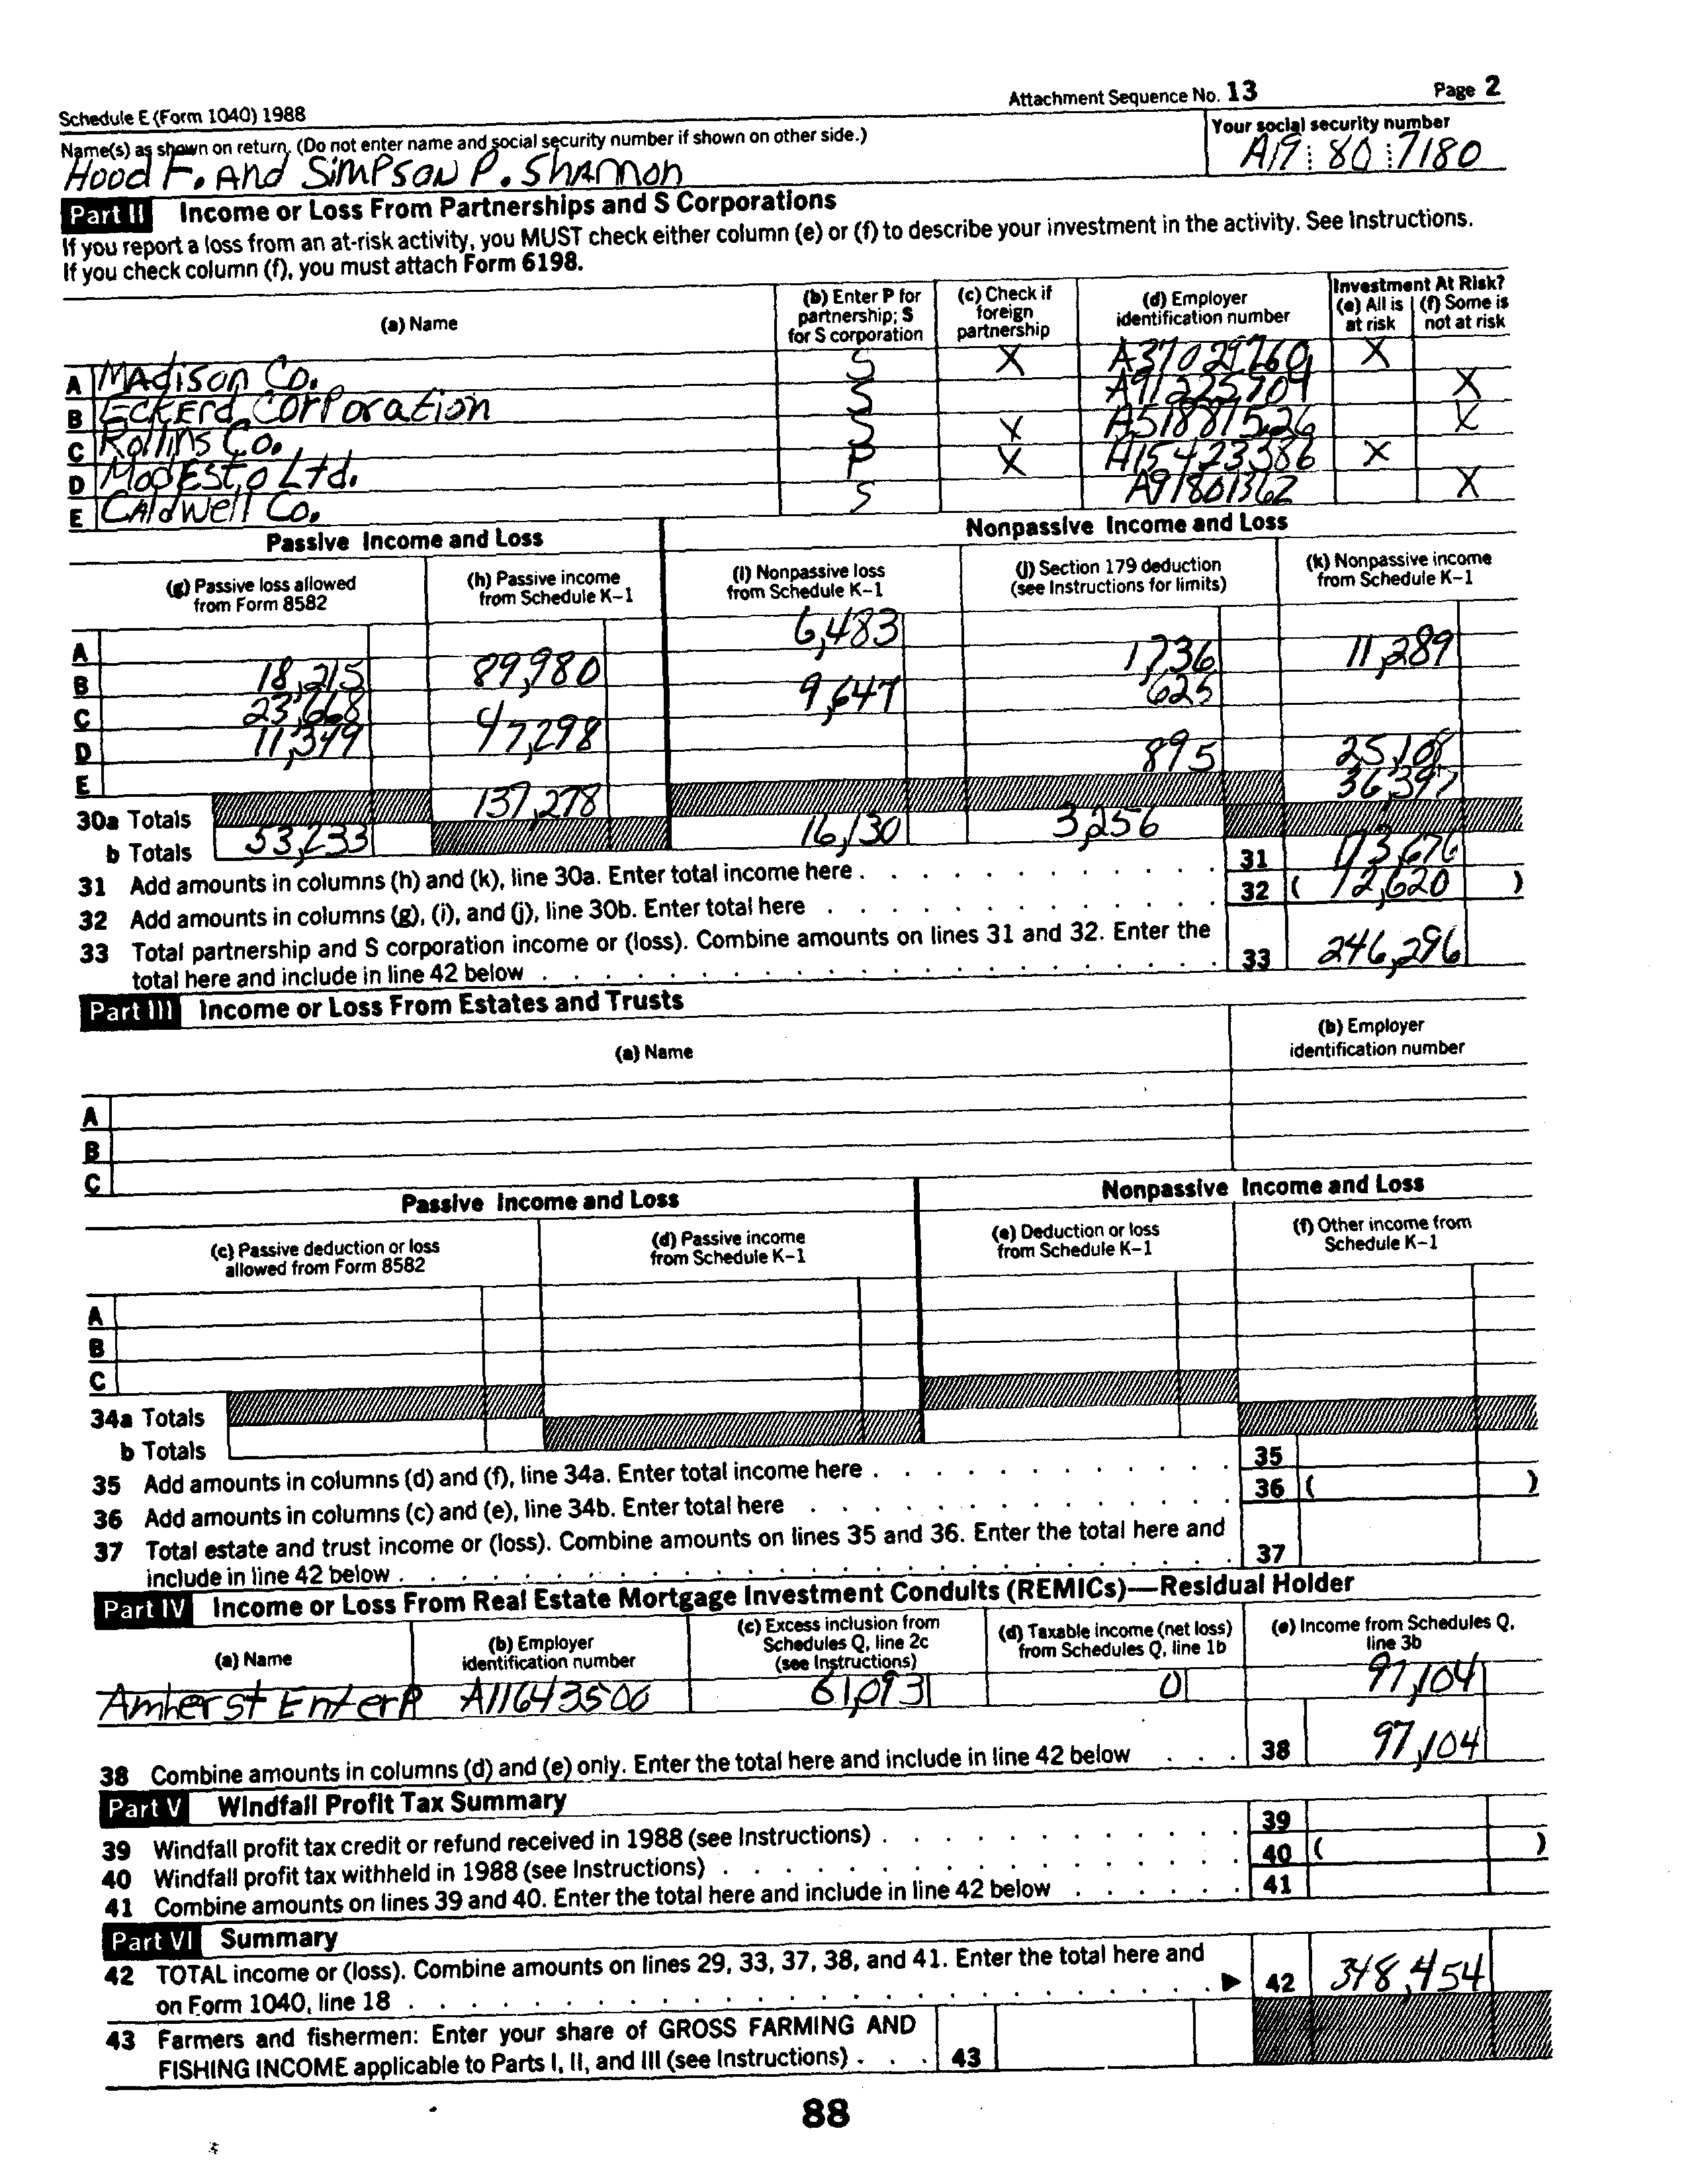 Schedule E (Form 1040) 1988 Attachment Sequence No. 13 Page 2
Name(s) as shown on return. (Do not enter name and social security number if shown on other side.) Your social security number
Hood F. And Simpson P. Shannon A19 80 7180
Part II Income or Loss From Partnerships and S Corporations
If you report a loss from an at-risk activity, you MUST check either column (e) or (f) to describe your investment in the activity. See Instructions.
If you check column (f), you must attach Form 6198.
(a) Name (b) Enter P for partnership; S for S corporation (c) Check if foreign partnership (d) Employer identification number Investment At Risk? (e) All is at risk (f) Some is not at risk
A Madison Co. S X A37029760 X
B Eckerd Corporation S A91225709 X
C Rollins Co. S X A51887526 X
D Modesto Ltd. P X A15423386 X
E Caldwell Co. S A91801362 X
Passive Income and Loss Nonpassive Income and Loss
(g) Passive loss allowed from Form 8582 (h) Passive income from Schedule K-1 (i) Nonpassive loss from Schedule K-1 (j) Section 179 deduction (see Instructions for limits) (k) Nonpassive income from Schedule K-1
A 6,483
B 18,215 89,980 1,736 11,289
C 23,668 9,647 625
D 11,349 47,298
E 895 25,108
30a Totals 137,278 36,397
b Totals 53,233 16,130 3,256
31 Add amounts in columns (h) and (k), line 30a. Enter total income here 31 173,676
32 Add amounts in columns (g), (i), and (j), line 30b. Enter total here 32 ( 12,620 )
33 Total partnership and S corporation income or (loss). Combine amounts on lines 31 and 32. Enter the
total here and include in line 42 below 33 246,296
Part III Income or Loss From Estates and Trusts
(a) Name (b) Employer identification number
A
B
C
Passive Income and Loss Nonpassive Income and Loss
(c) Passive deduction or loss allowed from Form 8582 (d) Passive income from Schedule K-1 (e) Deduction or loss from Schedule K-1 (f) Other income from Schedule K-1
A
B
C
34a Totals
b Totals
35 Add amounts in columns (d) and (f), line 34a. Enter total income here 35
36 Add amounts in columns (c) and (e), line 34b. Enter total here 36 ( )
37 Total estate and trust income or (loss). Combine amounts on lines 35 and 36. Enter the total here and
include in line 42 below 37
Part IV Income or Loss From Real Estate Mortgage Investment Conduits (REMICs)—Residual Holder
(a) Name (b) Employer identification number (c) Excess inclusion from Schedules Q, line 2c (see Instructions) (d) Taxable income (net loss) from Schedules Q, line 1b (e) Income from Schedules Q, line 3b
Amherst EnterP A11643500 61,093 0 97,104
38 Combine amounts in columns (d) and (e) only. Enter the total here and include in line 42 below 38 97,104
Part V Windfall Profit Tax Summary
39 Windfall profit tax credit or refund received in 1988 (see Instructions) 39
40 Windfall profit tax withheld in 1988 (see Instructions) 40 ( )
41 Combine amounts on lines 39 and 40. Enter the total here and include in line 42 below 41
Part VI Summary
42 TOTAL income or (loss). Combine amounts on lines 29, 33, 37, 38, and 41. Enter the total here and
on Form 1040, line 18 42 348,454
43 Farmers and fishermen: Enter your share of GROSS FARMING AND
FISHING INCOME applicable to Parts I, II, and III (see Instructions) 43
88